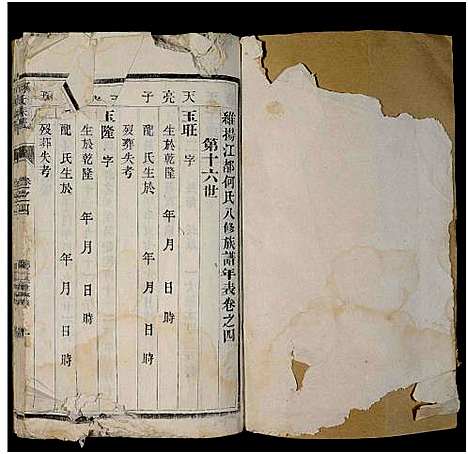 維揚江都何氏八修族譜年表卷之四
第十六世
天亮子
玉珏 字
生於乾隆 年 月 日 時
龍 氏生於 年 月 日 時
歿葬失考
玉隆 字
生於乾隆 年 月 日 時
龍 氏生於 年 月 日 時
歿葬失考